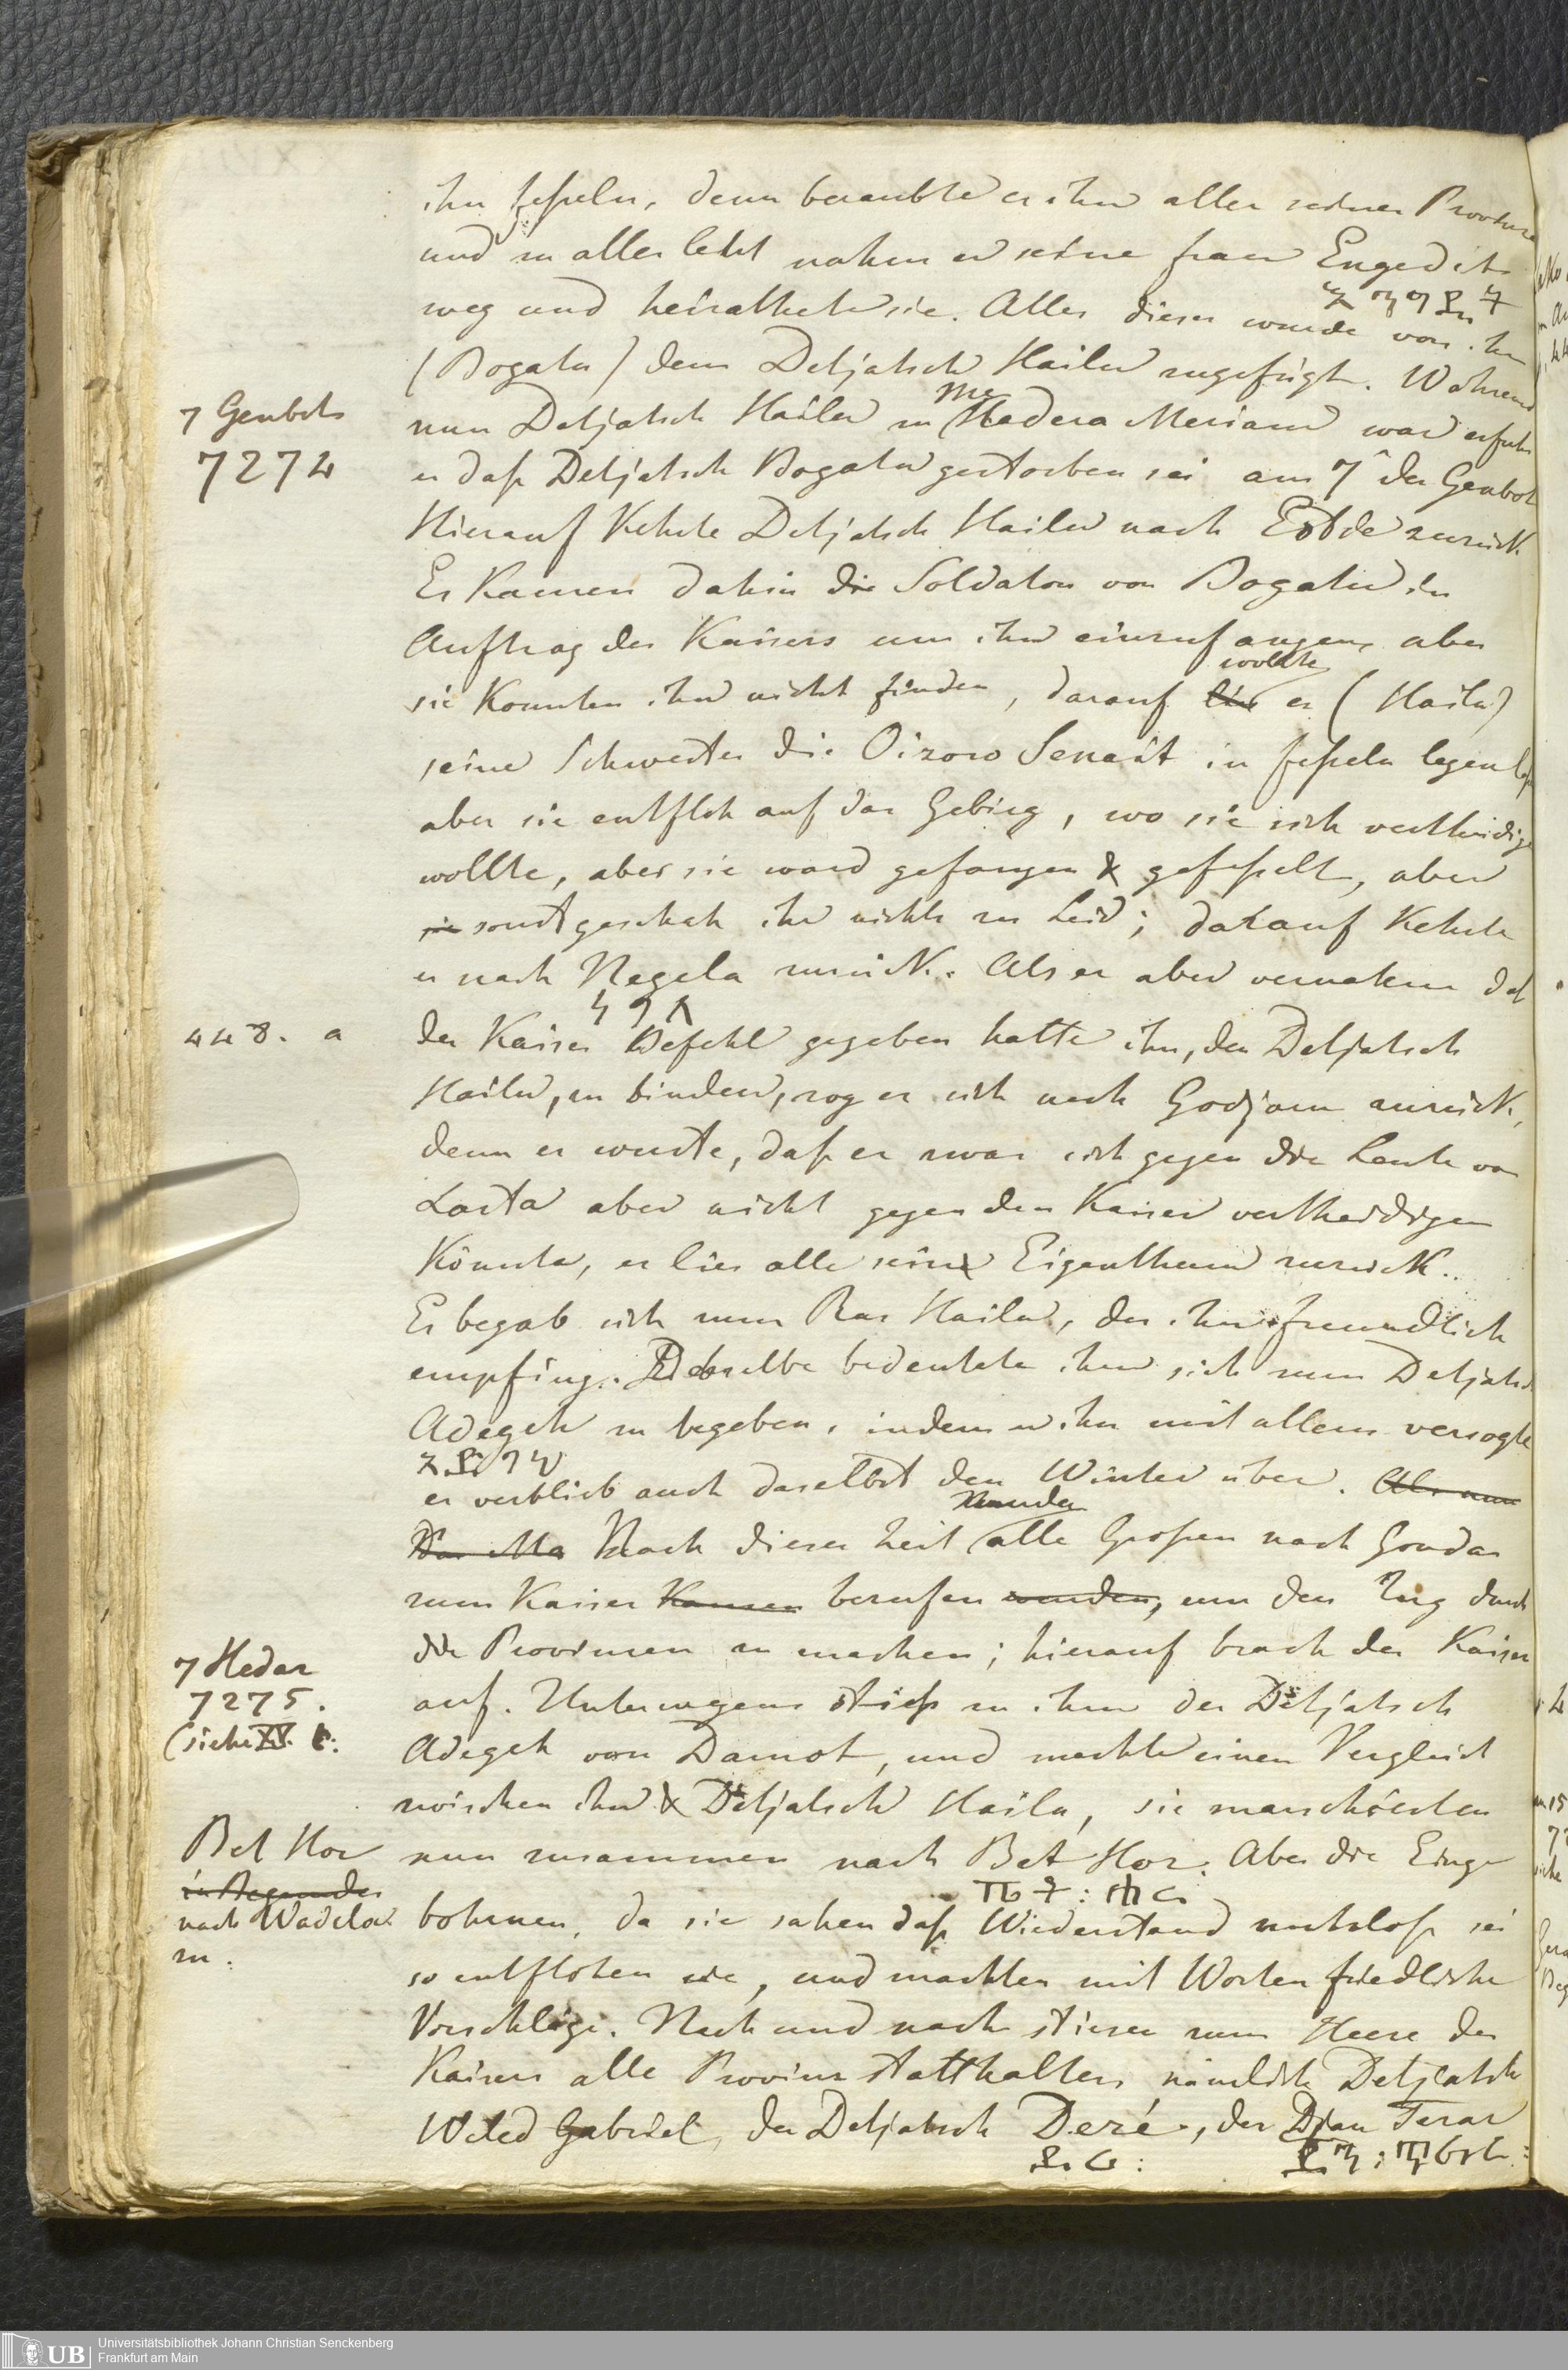 ihn feßeln, denn beraubte er ihn aller seiner Provinze
und zu aller letzt nahm er seine frau Engedit
እንግዲት
weg und heirathete sie. Alles dieses wurde von ihm
(Bogalu) dem Detjatsch Hailu zugefügt. Während
7 Genbot
7274
nun Detjatsch Hailu zu Medera Meriam war erfuhr
er daß Detjatsch Bogalu gestorben sei am 7t der Genbot
Hierauf Kehrte Detjatsch Hailu nach zurück
Es Kamen dahin die Soldaten von Bogalu im
Auftrag des Kaisers um ihn einzufangen, aber
sie Konnten ihn nicht finden, darauf wollte er (Hailu)
seine Schwester die Oizoro Senait in feßeln legen
aber sie entfloh auf das Gebirg, wo sie sich vertheidige
wollte, aber sie ward gefangen & gefeßelt, aber
sie sonst geschah ihr nichts zu Leid; darauf Kehrte
er nach Negela zurück. Als er aber vernahm daß
448. a
der Kaiser Befehl gegeben hatte ihn, den Detjatsch
Hailu, zu binden, zog er sich nach Godjam zurück,
denn er wuste, daß er zwar sich gegen die Leute von
Lasta aber nicht gegen den Kaiser vertheidigen
Könnte, er lies alle sein Eigenthum zurück.
Er begab sich zum Ras Hailu, der ihn freundlich
empfing. Derselbe bedeutete ihm sich zum Detjatsch
Adegeh zu begeben, indem er ihn mit allem versogte
ኣዲገህ
er verblieb auch daselbst den Winter über. Als nun
Nach dieser Zeit wurden alle Großen nach Gondar
zum Kaiser Kamen berufen wurden, um den Zug durch
die Provinzen zu machen; hierauf brach der Kaiser
7 Hedar
7275.
(siehe XV.
auf. Unterwegens stieß zu ihm der Detjatsch
Adegeh von Damot, und machte einen Vergleich
zwischen ihm & Detjatsch Hailu, sie marschierten
Bet Hor
in Begemder
nach Wadela
zu.
nun zusammen nach Bet Hor. Aber die Einge
ቤት: ሖር
bohrnen, da sie sahen daß Wiederstand nutzloß sei
so entflohen sie, und machten mit Worten friedliche
Vorschläge. Nach und nach stiesen zum Heere des
Kaisers alle Provinz statthalters nämlich Detjatsch
Weled Gabriel, der Detjatsch Dezé, der Djan Terar